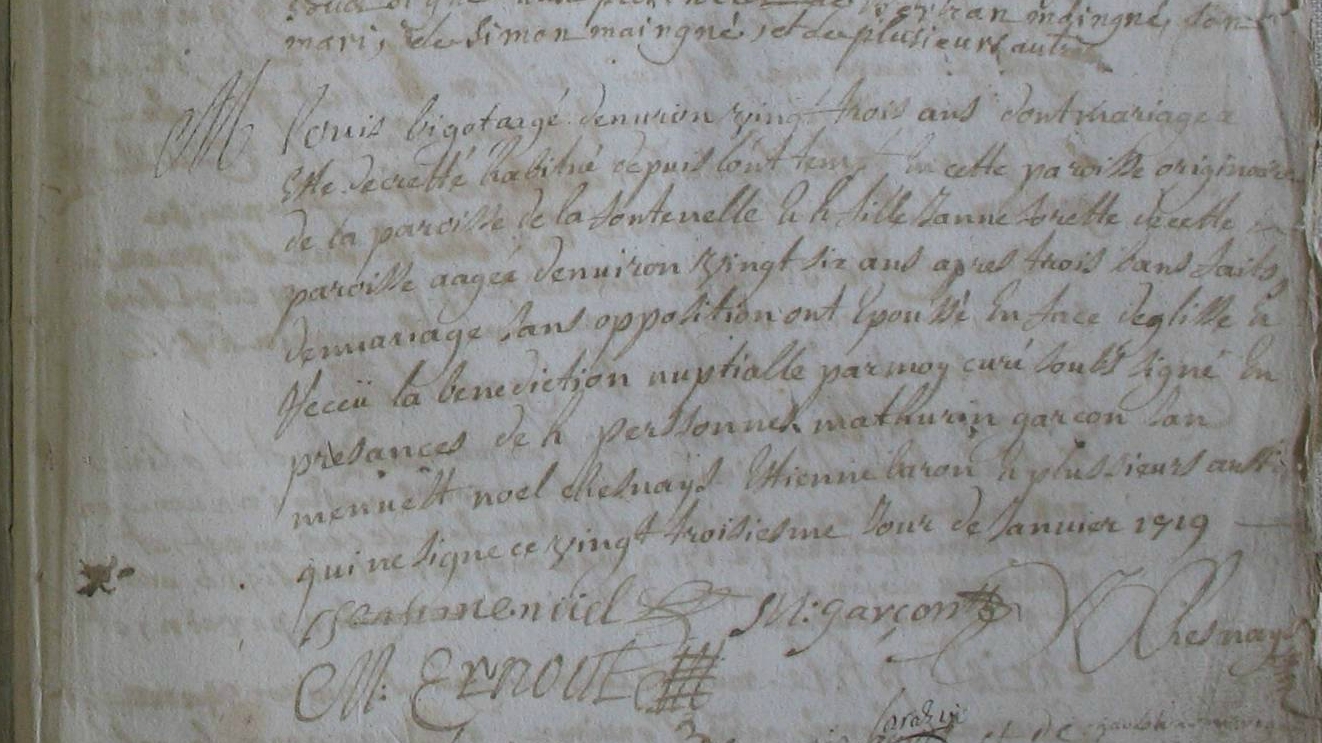 mari, de Simon maingné, et de plusieurs autres
M Louis bigot aagé denuiron vingt trois ans dont mariage a
Este decretté habitué depuis lont temps En cette paroisse originaire
de la paroisse de la fontenelle Et h fille Janne Sorette de cette
paroisse aagée denuiron vingt six ans apres trois bans faits
de mariage sans opposition ont Epoussé En face deglisse Et
Receü la benediction nuptialle par moy curé soubs signé En
presances de h perssonnes mathurin garçon Jan
menuëtt noel chesnays Estienne baron Et plussieurs autres
qui ne signe ce vingt troisiesme Jour de Janvier 1719
Jean menüel M: garçon Chesnays
M: ERNOUL